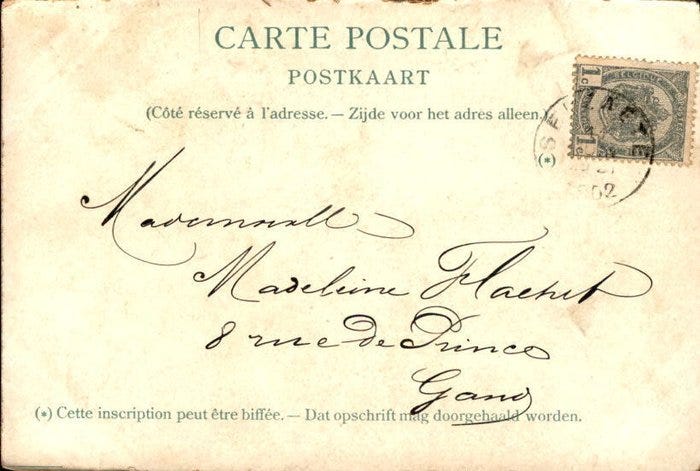 CARTE POSTALE
POSTKAART
(Côté réservé à l'adresse. — Zijde voor het adres alleen.)
BELGIQUE
1c 1c
(*)
1902
Mademoiselle
Madeleine
8 rue de Prince
Gand
(*) Cette inscription peut être biffée. — Dat opschrift mag doorgehaald worden.